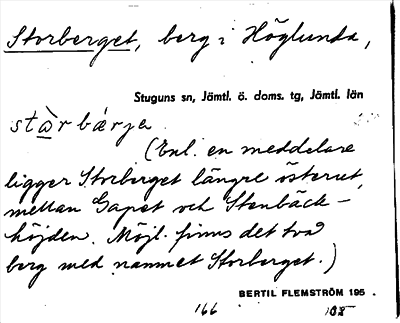 Storberget, berg i Höglunda,
Stuguns sn, Jämtl. ö. doms. tg, Jämtl. län
(Enl. en meddelare
ligger Storberget längre österut,
mellan Gapet och Stenbäck-
höjden. Möjl. finns det två
berg med namnet Storberget.)
BERTIL FLEMSTRÖM 195
166